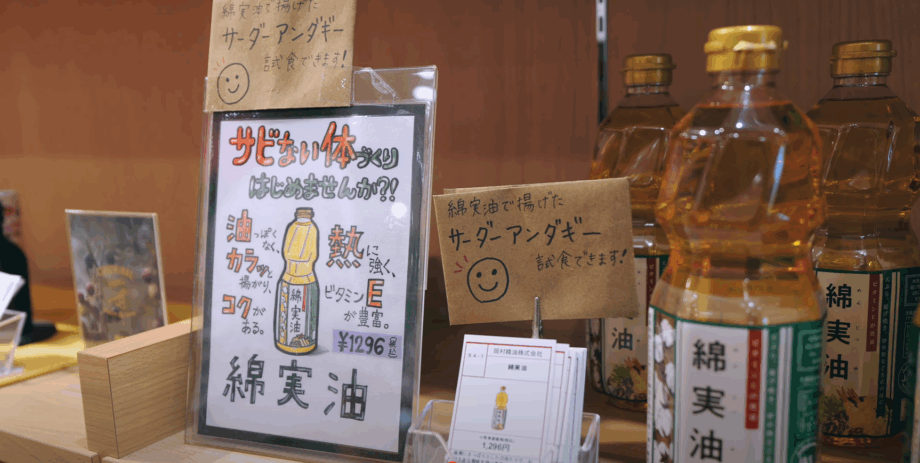 綿実油で揚げた
サーダーアンダギー
試食できます!
サビない体づくり
はじめませんか?!
油っぽく
なく、
カラッと
揚がり、
コクが
ある。
熱に
強く、
ビタミンE
が豊富。
綿実油
¥1296(税込)
綿実油
綿実油で揚げた
サーダーアンダギー
試食できます!
綿実油
1,296円
油
綿実油
綿実油